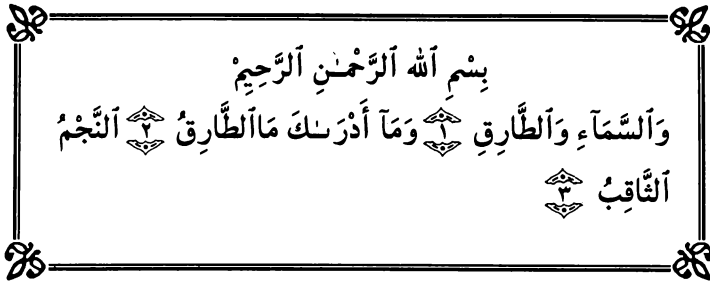 بِسْمِ ٱللهِ ٱلرَّحْمَـٰنِ ٱلرَّحِيمِْ
وَٱلسَّمَآءِ وَٱلطَّارِقِ ١ وَمَآ أَدْرَىٰكَ مَاٱلطَّارِقُ ٢ ٱلنَّجْمُ
ٱلثَّاقِبُ ٣